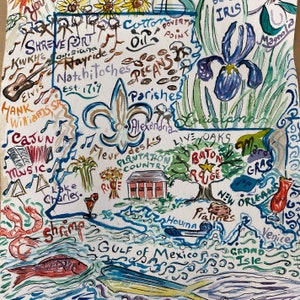 IRIS
Magnolia
Cotton
SHREVEPORT
Oil
POVERTY
POINT
KWKH Louisiana
Hayride
Natchitoches
Est. 1714
PECANS
HANK
Williams Sr.
Parishes
Louisiana
Alexandria
Fleur de lis
LIVE OAKS
CAJUN
MUSIC
PLANTATION
COUNTRY
BATON
ROUGE
Mardi
GRAS
RICE
Lake
Charles
NEW ORLEANS
Shrimp
Houma
Pirates
Venice
Gulf of Mexico
GRAND
ISLE